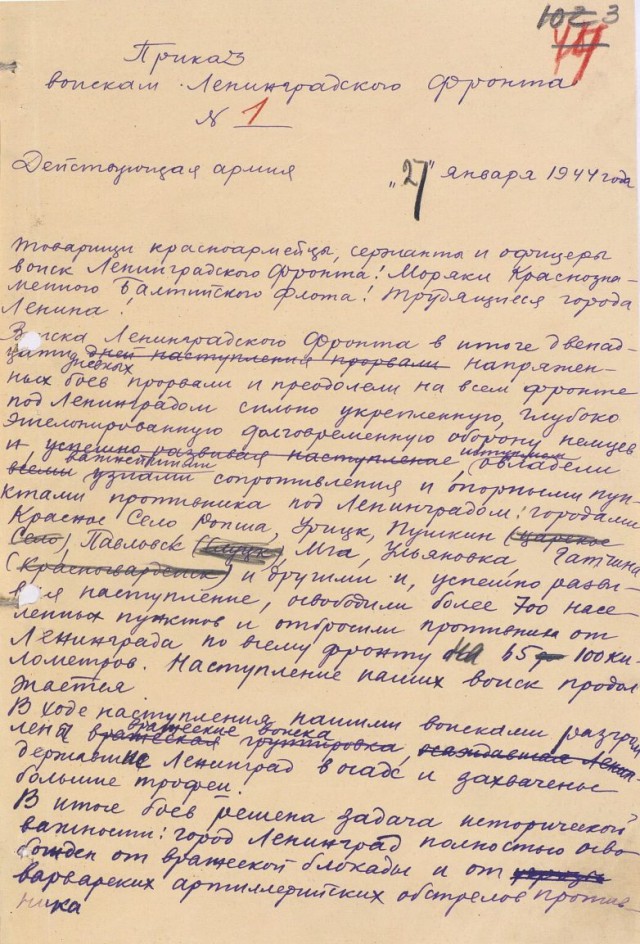 102 3
44
Приказ
войскам Ленинградского фронта
№ 1
Действующая армия „27" января 1944 года
Товарищи красноармейцы, сержанты и офицеры
войск Ленинградского фронта! Моряки Краснозна-
менного Балтийского флота! Трудящиеся города
Ленина!
Войска Ленинградского фронта в итоге двенад-
цати дней наступления прорвали напряжен-
дневных
ных боев прорвали и преодолели на всем фронте
под Ленинградом сильно укрепленную, глубоко
эшелонированную долговременную оборону немцев
и успешно развивая наступление, штурмом овладели
важнейшими
всеми узлами сопротивления и опорными пун-
ктами противника под Ленинградом: городами
Красное Село Ропша, Урицк, Пушкин (Царское
Село), Павловск (Слуцк, Мга, Ульяновка, Гатчина
(Красногвардейск) и другими и, успешно разви-
вая наступление, освободили более 700 насе-
ленных пунктов и отбросили противника от
Ленинграда по всему фронту на 65 100 ки-
лометров. Наступление наших войск продол
жается
В ходе наступления нашими войсками разгром
вражеские войска
лены вражеская группировка, осаждавшая Ленин-
державшие Ленинград в осаде и захвачены
большие трофеи.
В итоге боев решена задача исторической
важности: город Ленинград полностью осво
божден от вражеской блокады и от
варварских артиллерийских обстрелов против
ника